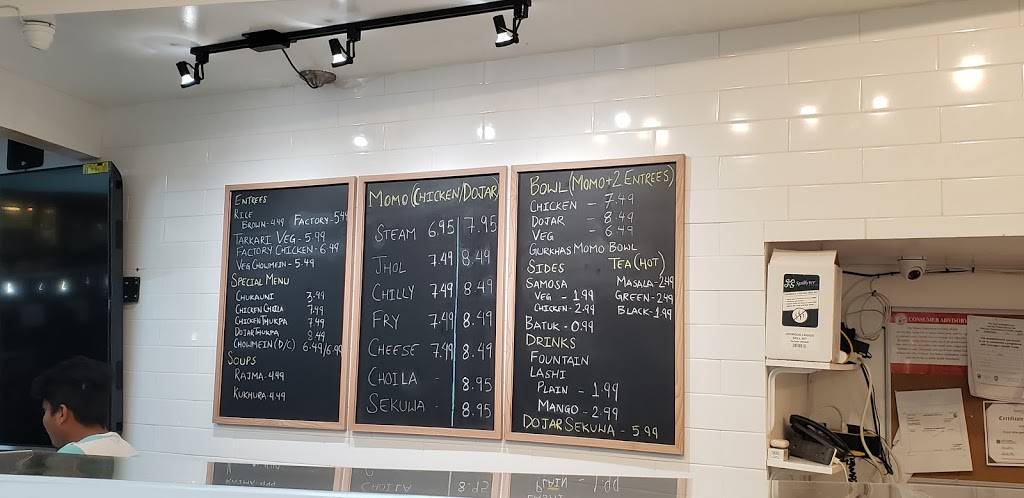 ENTREES
RICE
BROWN - 4.99 FACTORY - 5.49
TARKARI VEG - 5.99
FACTORY CHICKEN - 6.49
VEG CHOWMEIN - 5.49
SPECIAL MENU
CHUKAUNI 3.99
CHICKEN CHOILA 7.49
CHICKEN THUKPA 7.49
DOJAR THUKPA 8.49
CHOWMEIN (D/C) 6.49/6.99
SOUPS
RAJMA - 4.99
KUKHURA - 4.49
MOMO (CHICKEN/DOJAR)
STEAM 6.95 7.95
JHOL 7.49 8.49
CHILLY 7.49 8.49
FRY 7.49 8.49
CHEESE 7.49 8.49
CHOILA - 8.95
SEKUWA - 8.95
BOWL (MOMO + 2 ENTREES)
CHICKEN - 7.49
DOJAR - 8.49
VEG - 6.49
GURKHAS MOMO BOWL
SIDES TEA (HOT)
SAMOSA MASALA - 2.49
VEG - 1.99 GREEN - 2.49
CHICKEN - 2.99 BLACK - 1.99
BATUK - 0.99
DRINKS
FOUNTAIN
LASHI
PLAIN - 1.99
MANGO - 2.99
DOJAR SEKUWA - 5.99
CONSUMER ADVISORY